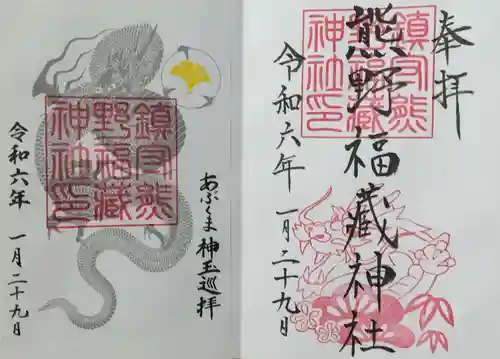 奉拝
熊野福藏神社
令和六年 一月二十九日
鎮守熊
野福藏
神社印
あぶくま神玉巡拝
鎮守熊
野福藏
神社印
令和六年 一月二十九日